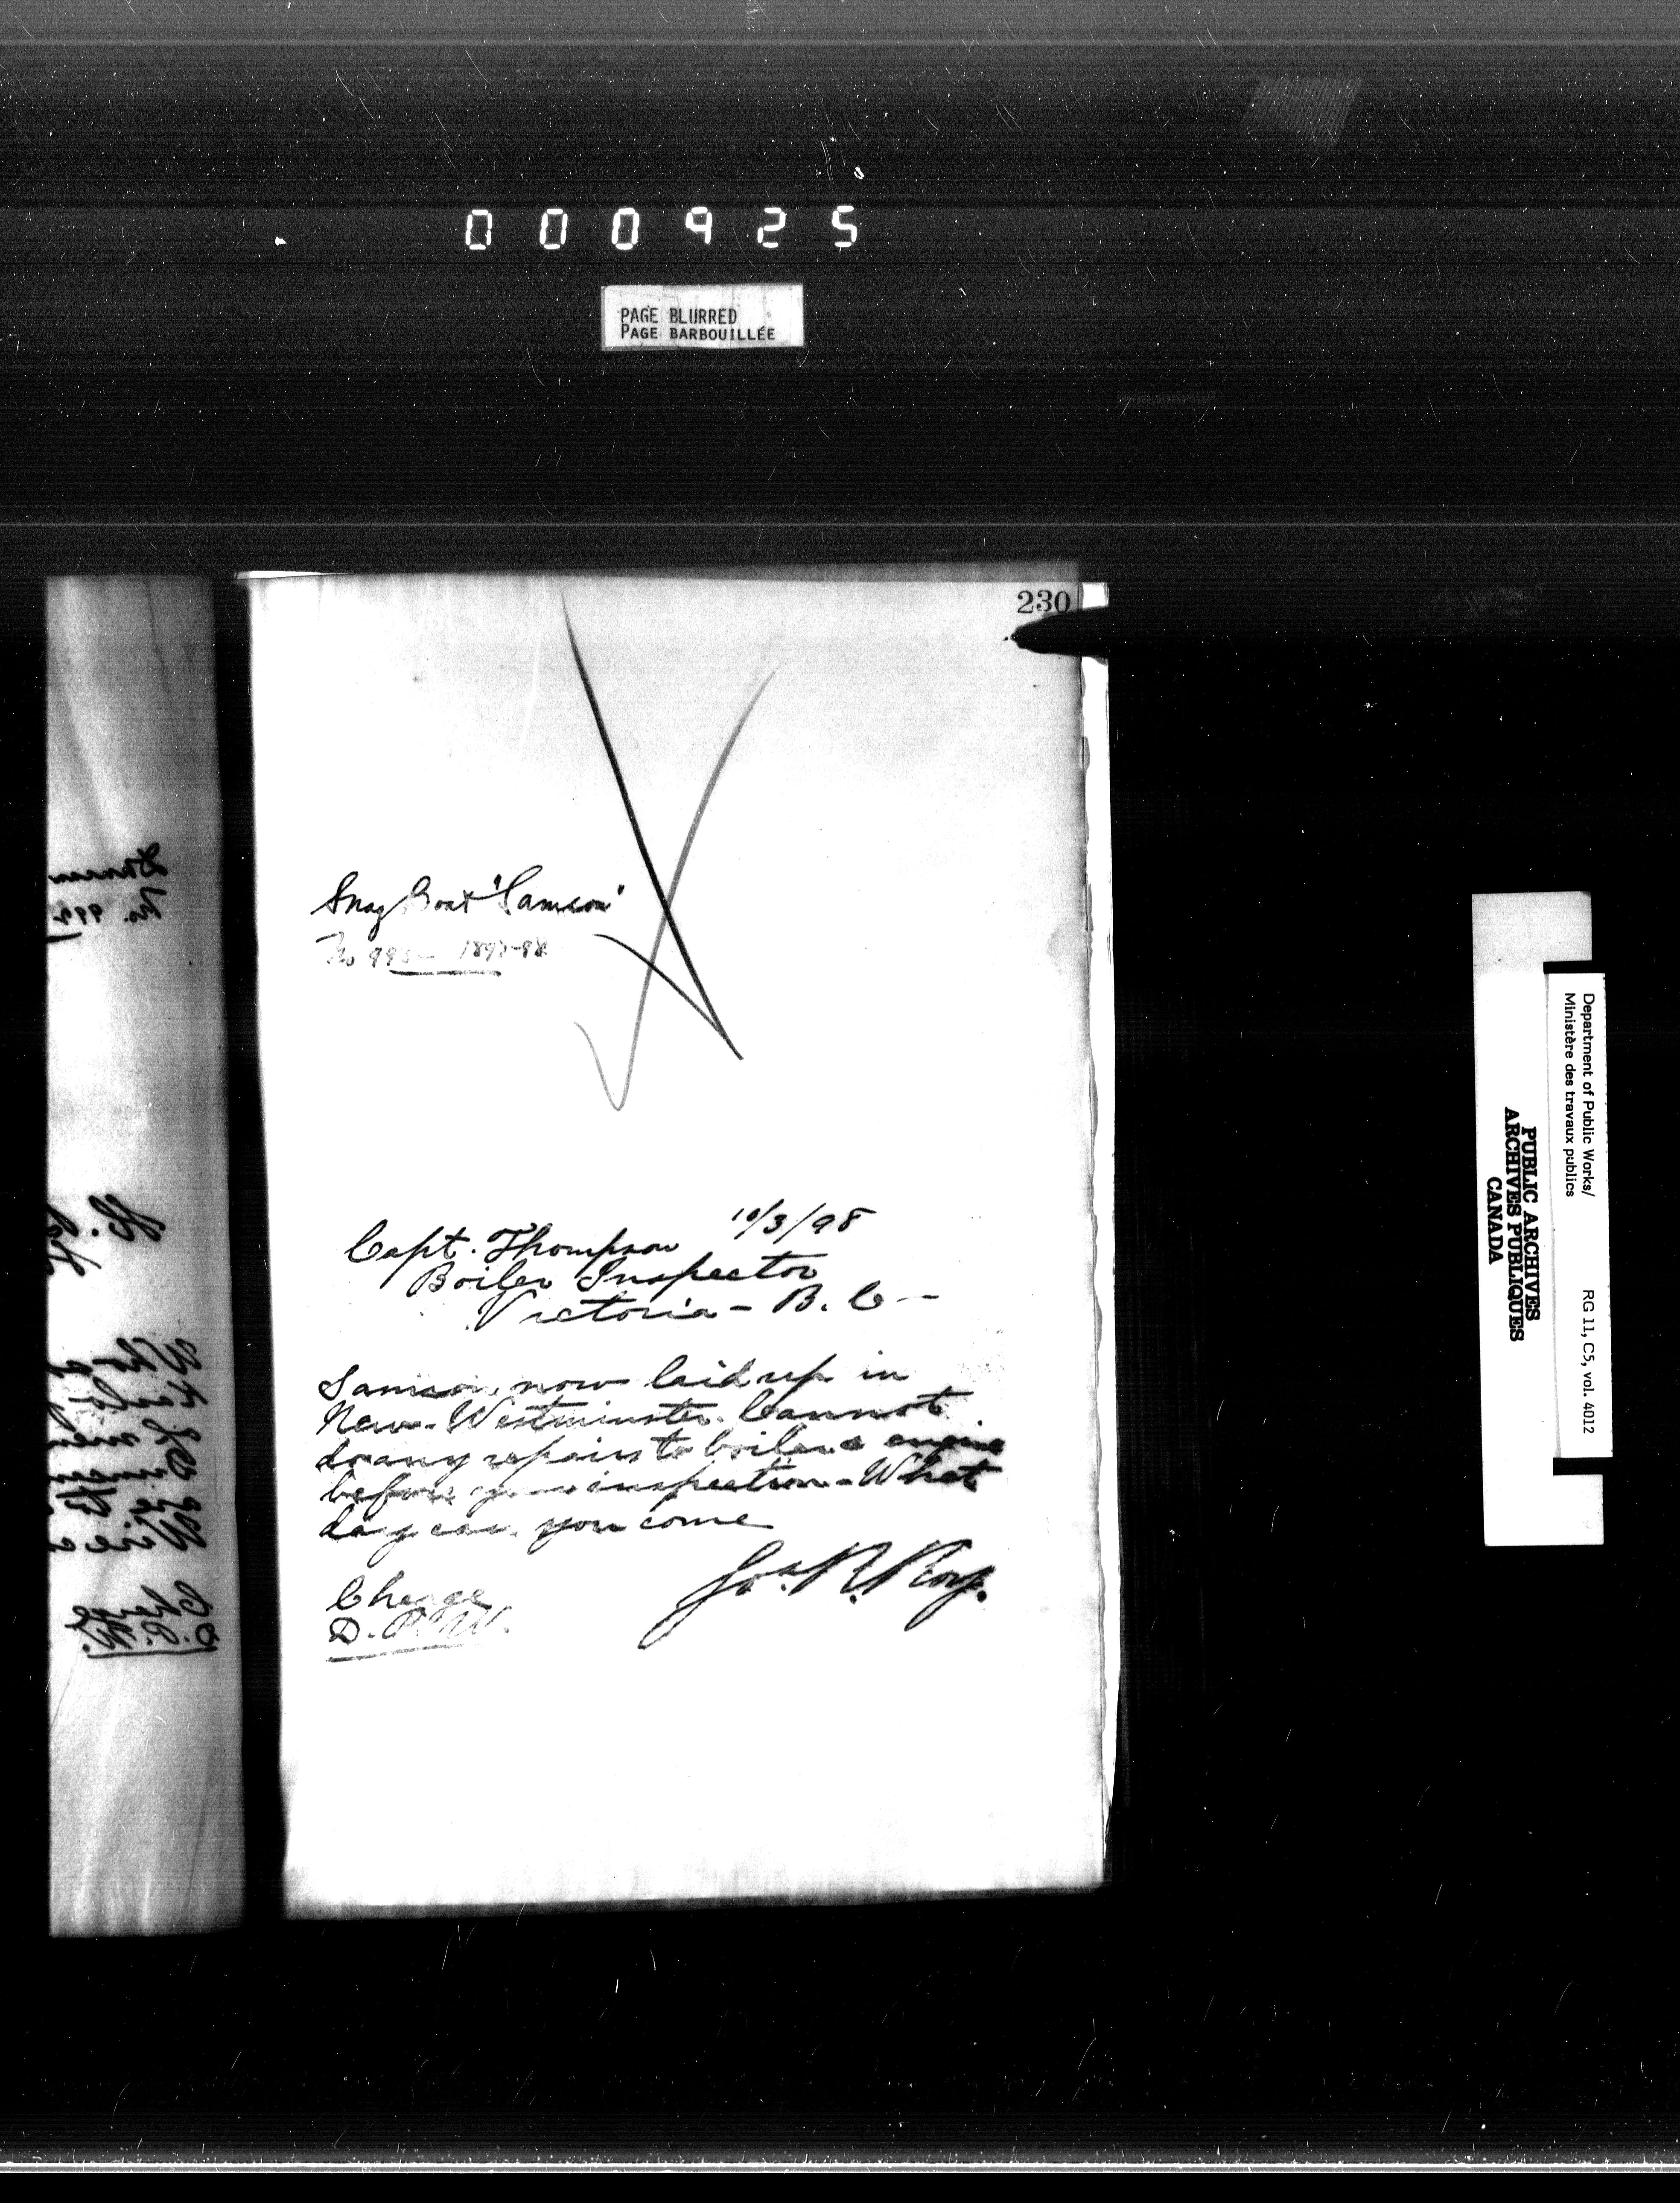 000925
PAGE BLURRED
PAGE BARBOUILLÉE
230
Snag Boat "Samson"
No 1897-98
10/3/98
Capt. Thompson
Boiler Inspector
Victoria - B. C -
Samson now laid up in
New-Westminster. Cannot
do any repairs to boiler & engine
before your inspection - What
day can you come
Jos. R. Roy.
Charge
D. P. W.
Department of Public Works/
Ministère des travaux publics
RG 11, C5, vol. 4012
PUBLIC ARCHIVES
ARCHIVES PUBLIQUES
CANADA